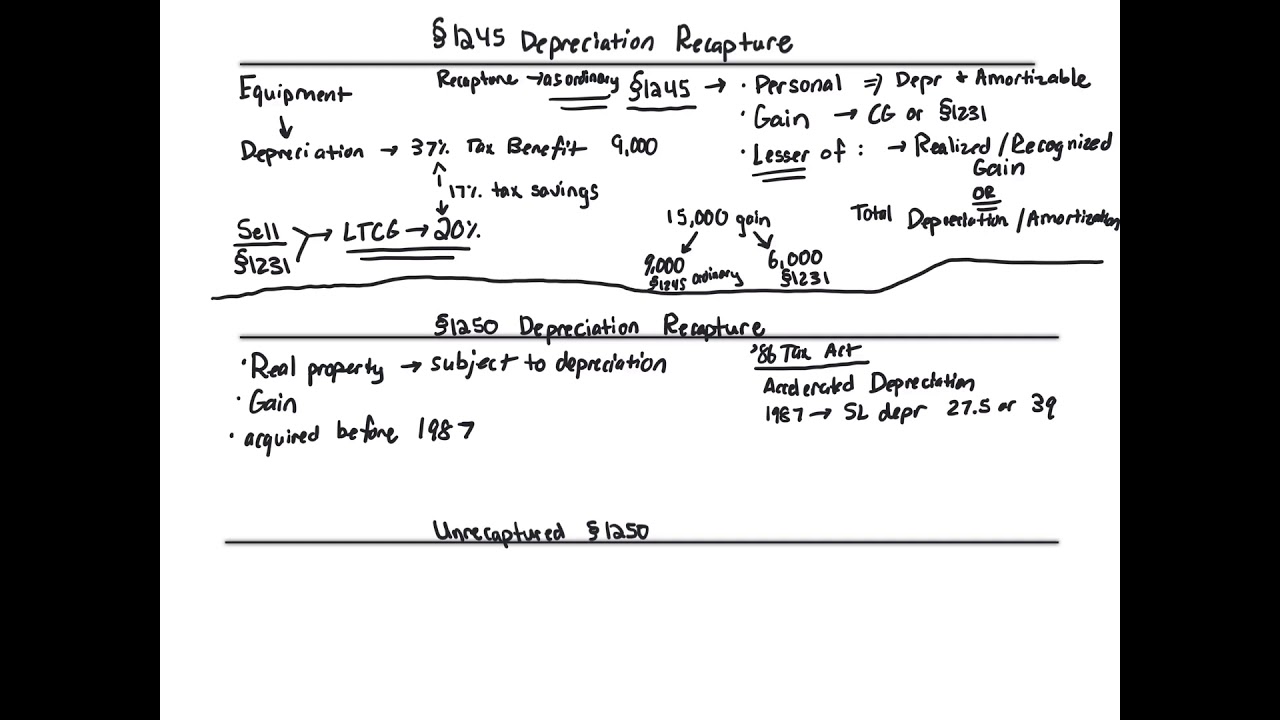 §1245 Depreciation Recapture
Equipment
Recapture → as ordinary §1245 → • Personal ⇒ Depr + Amortizable
• Gain → CG or §1231
Depreciation → 37% Tax Benefit 9,000
• Lesser of : → Realized/Recognized
Gain
OR
Total Depreciation/Amortization
17% tax savings
Sell
§1231
LTCG → 20%
15,000 gain
9,000
§1245 ordinary
6,000
§1231
§1250 Depreciation Recapture
• Real property → subject to depreciation
• Gain
• acquired before 1987
'86 Tax Act
Accelerated Depreciation
1987 → SL depr 27.5 or 39
Unrecaptured §1250